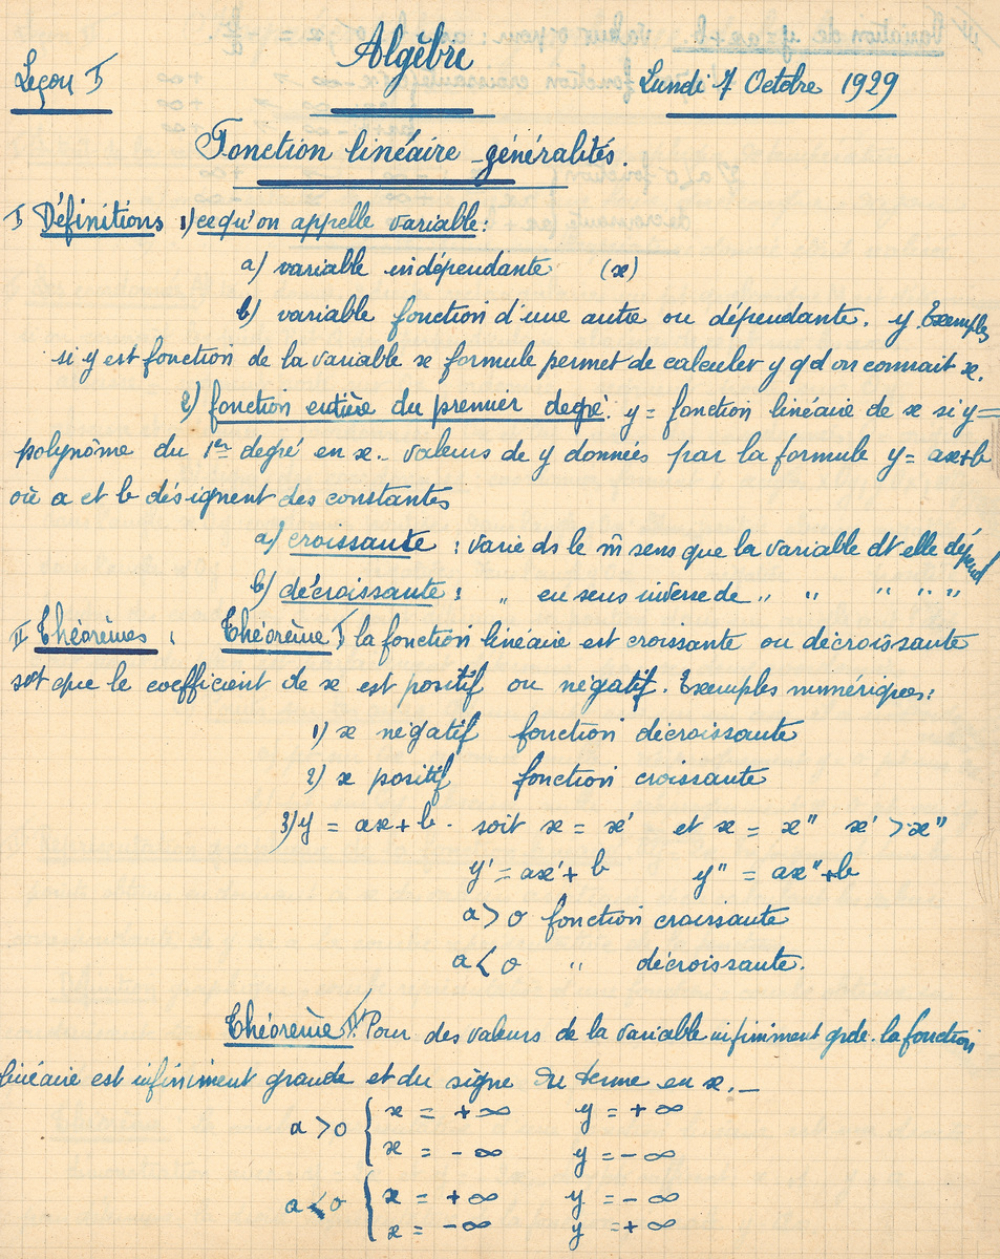 Algèbre
Leçon I Lundi 7 Octobre 1929
Fonction linéaire - généralités.
I Définitions 1) ce qu'on appelle variable :
a) variable indépendante (x)
b) variable fonction d'une autre ou dépendante. y Exemple
si y est fonction de la variable x formule permet de calculer y qd on connait x.
2) fonction entière du premier degré. y = fonction linéaire de x si y =
polynôme du 1er degré en x. - valeurs de y données par la formule y = ax+b
où a et b désignent des constantes
a) croissante : varie ds le m̂ sens que la variable dt elle dépend
b) décroissante : " en sens inverse de " " " " "
II Théorèmes : Théorème I la fonction linéaire est croissante ou décroissante
st que le coefficient de x est positif ou négatif. Exemples numériques :
1) x négatif fonction décroissante
2) x positif fonction croissante
3) y = ax + b . soit x = x' et x = x" x' > x"
y' = ax' + b y" = ax" + b
a > 0 fonction croissante
a < 0 " décroissante.
Théorème II : Pour des valeurs de la variable infiniment grde. la fonction
linéaire est infiniment grande et du signe du terme en x. -
a > 0 { x = + ∞ y = + ∞
x = - ∞ y = - ∞
a < 0 { x = + ∞ y = - ∞
x = - ∞ y = + ∞